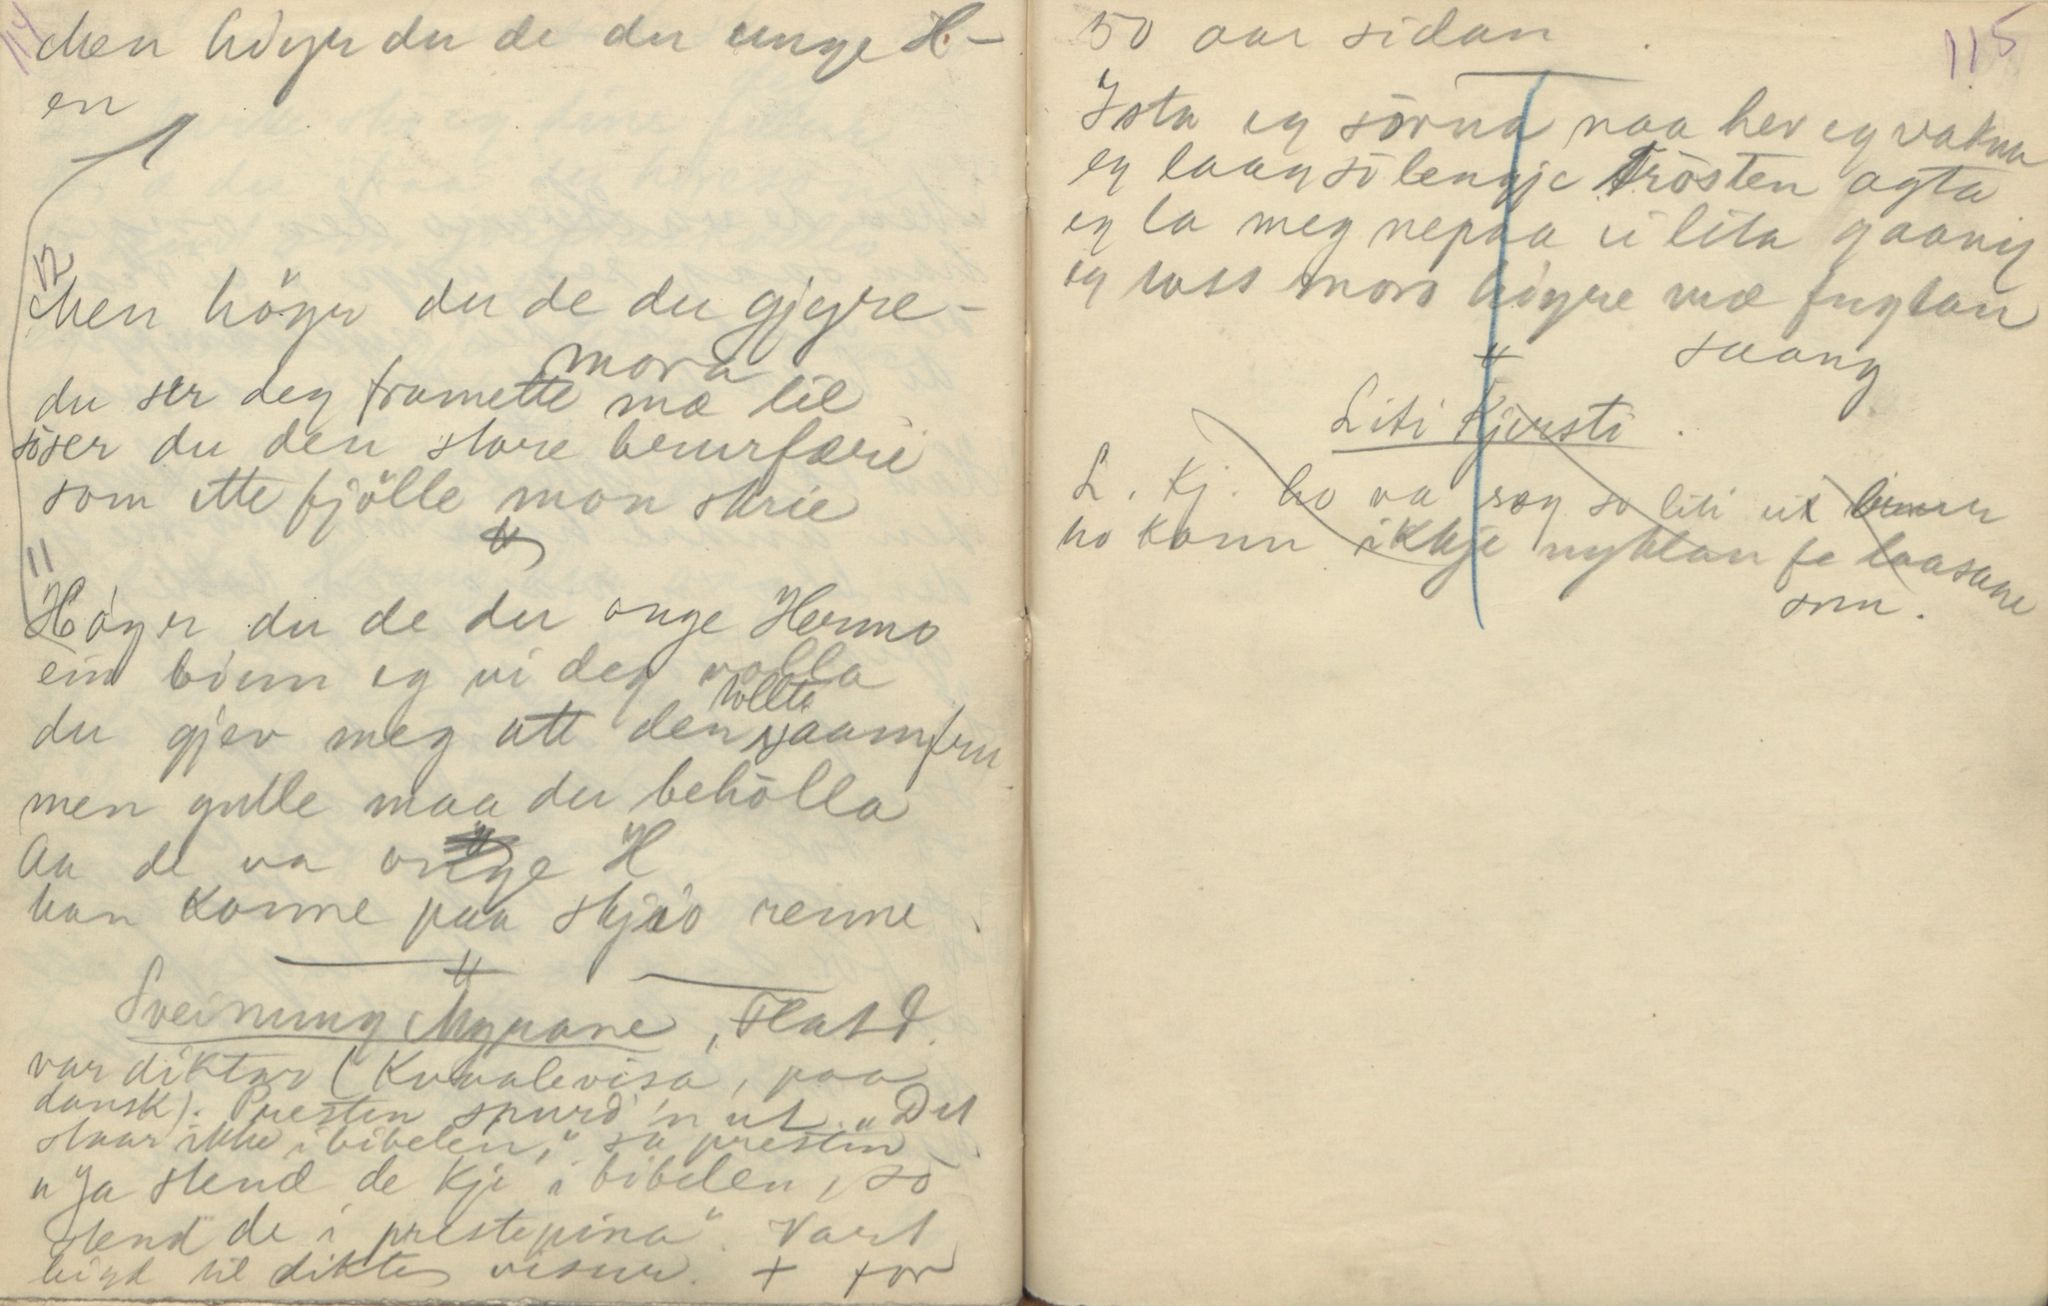 114
Men höyr du de du unge H–
en
12
Men höyr du de du gjyre–
mora
du ser deg framette mæ lie
söser du den store benurfærie
som ette fjölle mon skrie
11
Höyr du de du onge Hermo
ein bönn eg vi deg volla
tollta
du gjev meg att den jaamfru
men gulle maa du behölla
Aa de va onge H
han konne paa skjio renne
Sveinung Myrane, Flatd.
var diktar (Kvvalevisa, paa
dansk). Presten spurd'n ut. "Det
staar ikke i bibelen," sa presten
"Ja stend de kje i bibelen, so
stend de i prestepina". Vart
bigd til dikte visur. + for
115
50 aar sidan
Ista eg sovna naa hev eg vakna
eg laag so lengje Trösten agta
eg la meg nepaa ei lita gaang
eg töss moro höyre mæ fuglan
saang
Liti Kjersti.
L. Kj. ho va seg so liti eit
ho konn ikkje nyklan fe laasane
snu.